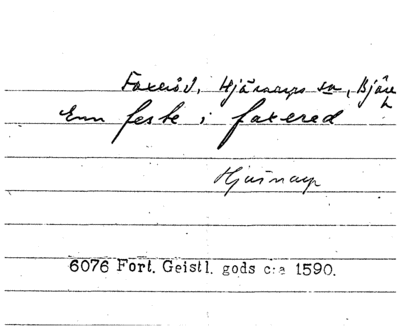 Faxeröd, Hjärnarps sn, Bjäre h
Enn feste i faxered
Hjärnarp
6076 Fort. Geistl. gods c:a 1590.